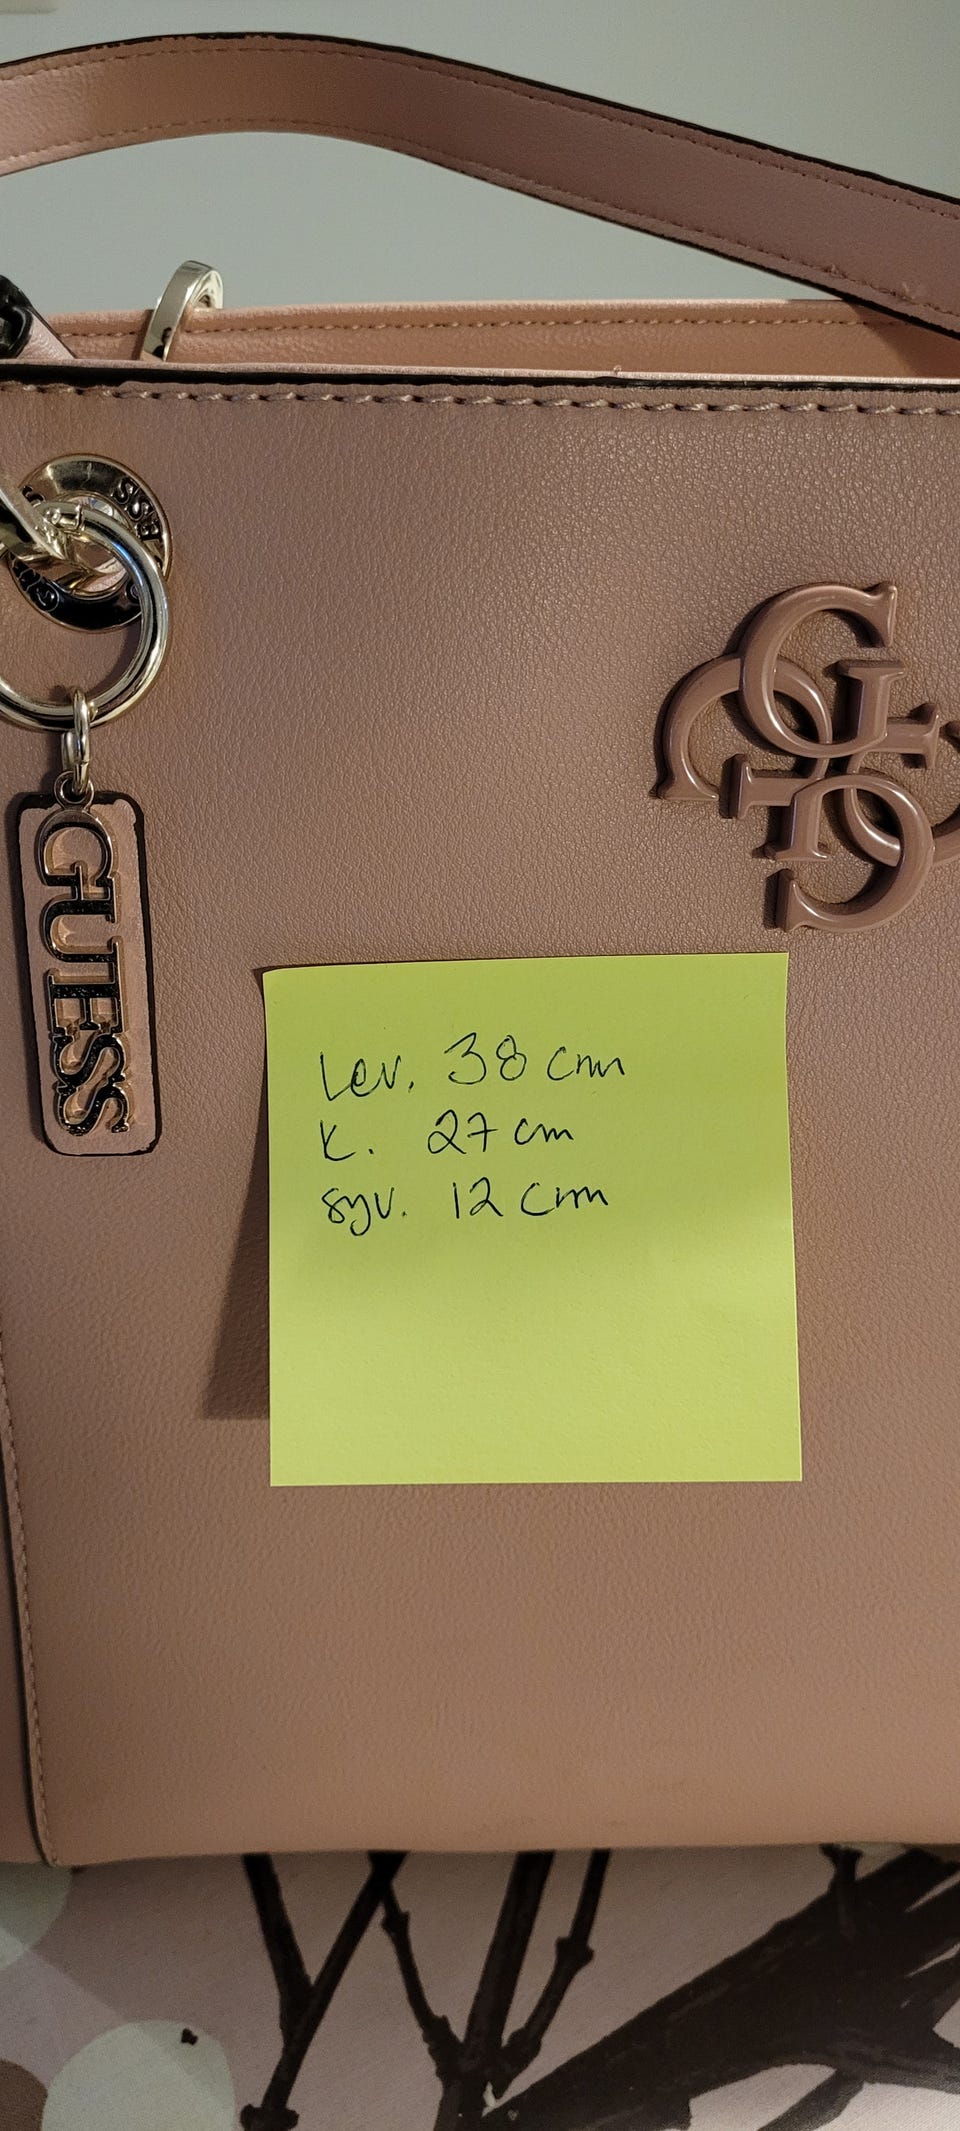 GUESS
Lev. 38 cm
K. 27 cm
syv. 12 cm